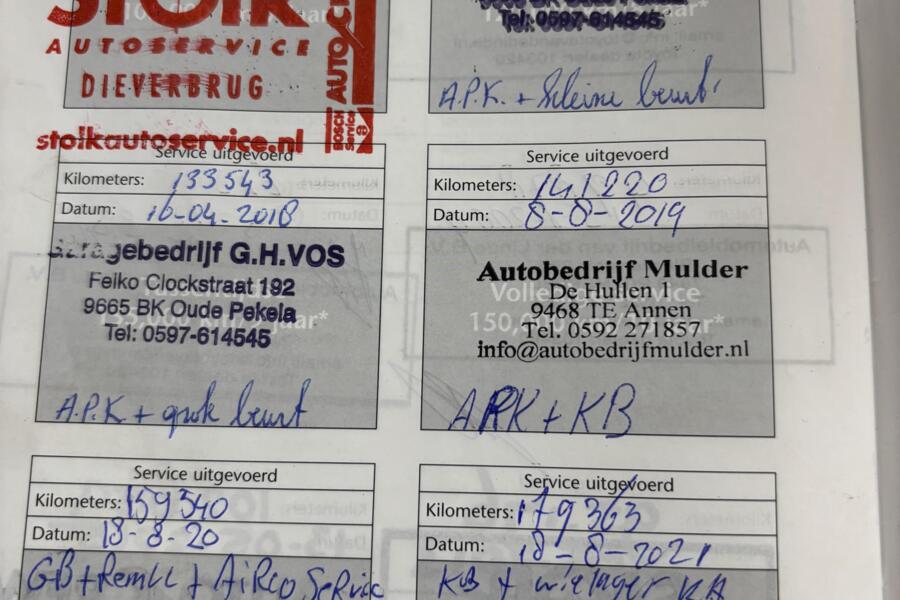 STOLK
AUTOSERVICE
DIEVERBRUG
AUTO
BOSCH
Service
stolkautoservice.nl
Tel: 0597-614545
A.P.K. + kleine beurt
Service uitgevoerd
Kilometers: 133543
Datum: 16-04-2018
Garagebedrijf G.H.VOS
Feiko Clockstraat 192
9665 BK Oude Pekela
Tel: 0597-614545
A.P.K + grote beurt
Service uitgevoerd
Kilometers: 141220
Datum: 8-8-2019
Autobedrijf Mulder
De Hullen 1
9468 TE Annen
Tel. 0592 271857
info@autobedrijfmulder.nl
APK + KB
Service uitgevoerd
Kilometers: 159340
Datum: 18-8-20
GB + Remvl + AiRco Service
Service uitgevoerd
Kilometers: 179363
Datum: 18-8-2021
KB + wiellager RA